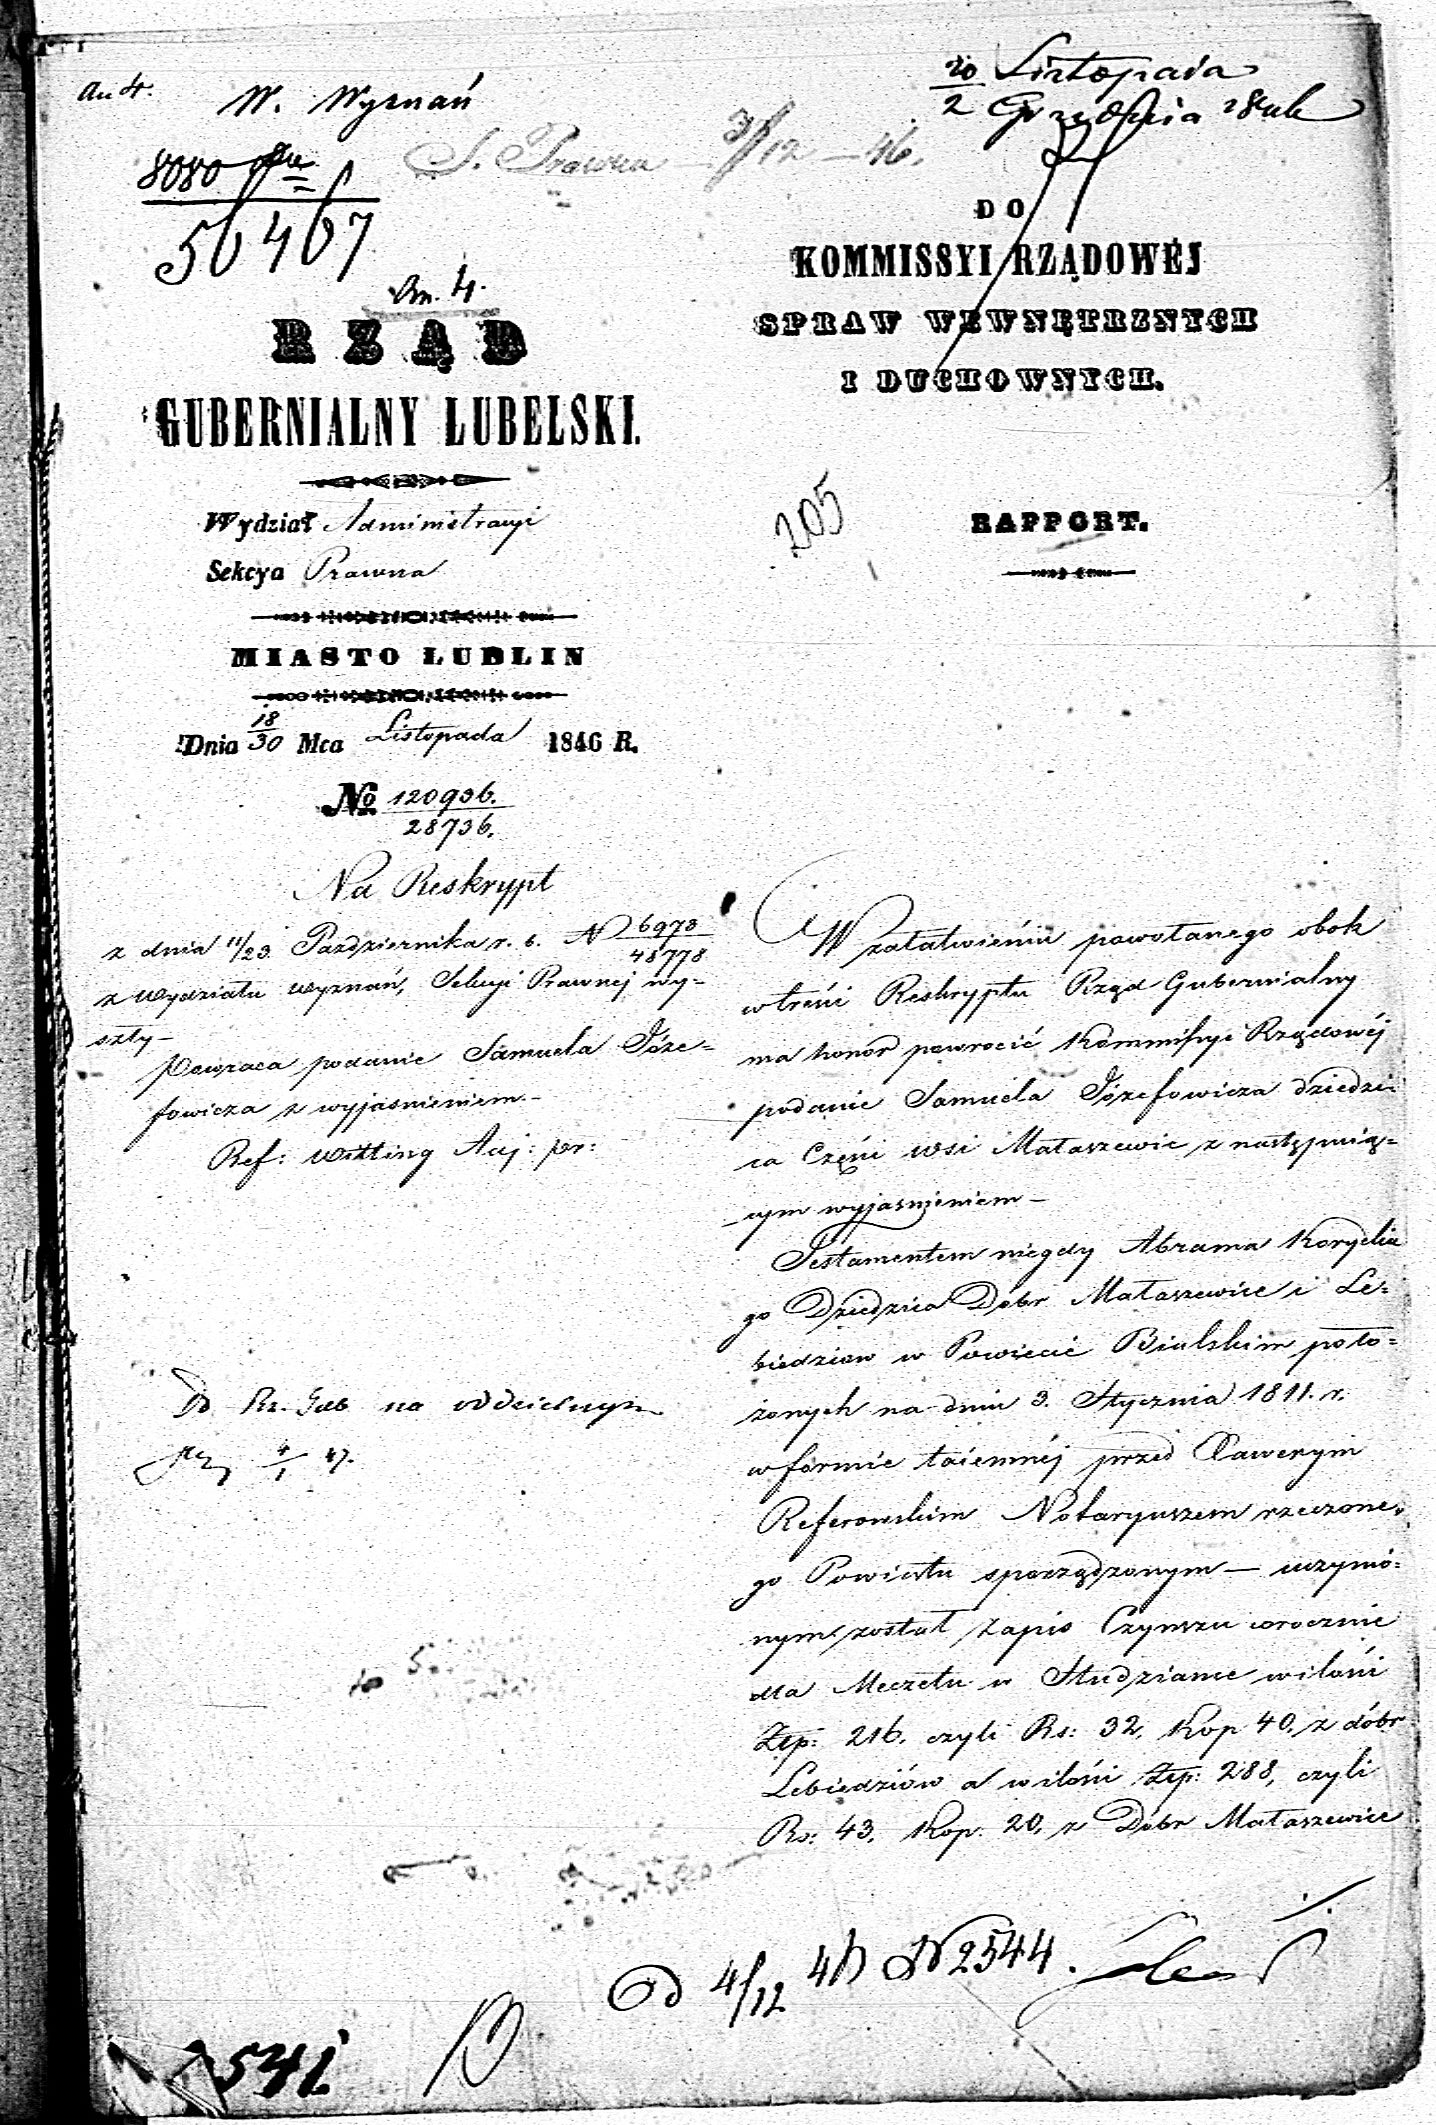 an 4.
W. Wyznań
8080
56467
An. 4.
RZĄD
GUBERNIALNY LUBELSKI.
Wydział Administracyi
Sekcya Prawna
MIASTO LUBLIN
Dnia 18/30 Mca Listopada 1846 R.
No 120936./28736.
Na Reskrypt
z dnia 11/23 Października r. b. N 6973/48778
z wydziału wyznań, Sekcyi Prawnej wy=
szły—
Powraca podanie Samuela Józe=
fowicza z wyjaśnieniem.—
Ref: Witting Adj: pr:
Do Rz. Gub na oddzielnym
4/1 47.
20/2 Listopada
Grudnia 1846
S. Prawna — 3/12 — 46.
DO
KOMMISSYI RZĄDOWÉJ
SPRAW WEWNĘTRZNYCH
I DUCHOWNYCH.
205
RAPPORT.
W załatwieniu powołanego obok
w treści Reskryptu Rząd Gubernialny
ma honor powrócić Kommissyi Rządowéj
podanie Samuela Józefowicza dziedzi=
ca Części wsi Małaszewic z następnią=
cym wyjaśnieniem—
Testamentem niegdy Abrama Koryckie
go Dziedzica Dóbr Małaszewice i Le=
biedziow w Powiecie Bialskim poło=
żonych na dniu 3. Stycznia 1811. r.
w formie taiemnéj przed Xawerym
Referowskim Notaryuszem rzeczone=
go Powiatu sporządzonym— uczynio=
nym został zapis Czynszu corocznie
dla Meczetu w Studziance w ilości
Złp: 216. czyli Rs: 32, Kop 40, z dóbr
Lebiedziów a w ilości Złp: 288, czyli
Rs: 43, Kop. 20, z Dóbr Małaszewice
Od 4/12 46 N 2544.
541.